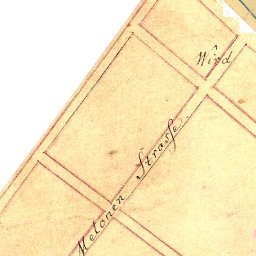 Wind
Melonen Strasse.